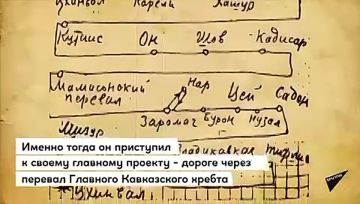 Цхинвал Карели Хашур
Кутиис Он Шов Кадисар
Мамисонский перевал
Нар
Зарамаг Бурон Цей Нузал Садон
Мизур
Именно тогда он приступил
к своему главному проекту - дороге через
перевал Главного Кавказского хребта
Цхинвал
SPUTNIK